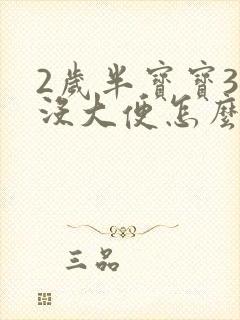 2歲半寶寶3
沒大便怎麼
三品